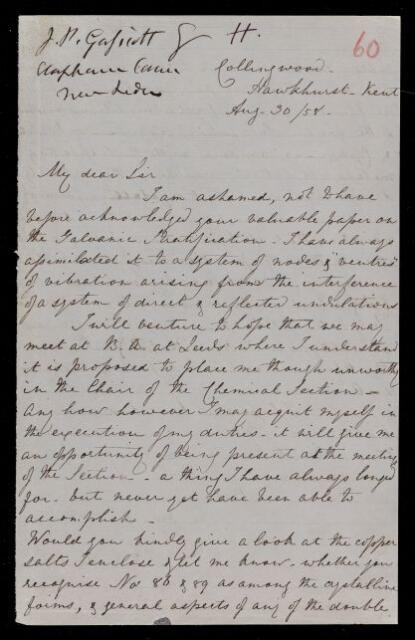 J. P. Gassiott Esq H.
Clapham Comn
near London
60
Collingwood.
Hawkhurst. Kent
Aug. 30/58.
My dear Sir
I am ashamed, not to have
before acknowledged your valuable paper on
the Galvanic Stratification. I have always
assimilated it to a system of nodes & "ventres"
of vibration arising from the interference
of a system of direct & reflected undulations
I will venture to hope that we may
meet at B. A. at Leeds where I understand
it is proposed to place me though unworthy
in the Chair of the Chemical Section –
Any how however I may acquit myself in
the execution of my duties – it will give me
an opportunity of being present at the meeting
of the Section – a thing I have always longed
for – but never yet have been able to
accomplish –
Would you kindly give a look at the copper
salts I enclose & let me know whether you
recognise Nos 86 & 89 as among the crystalline
forms, & general aspects of any of the double